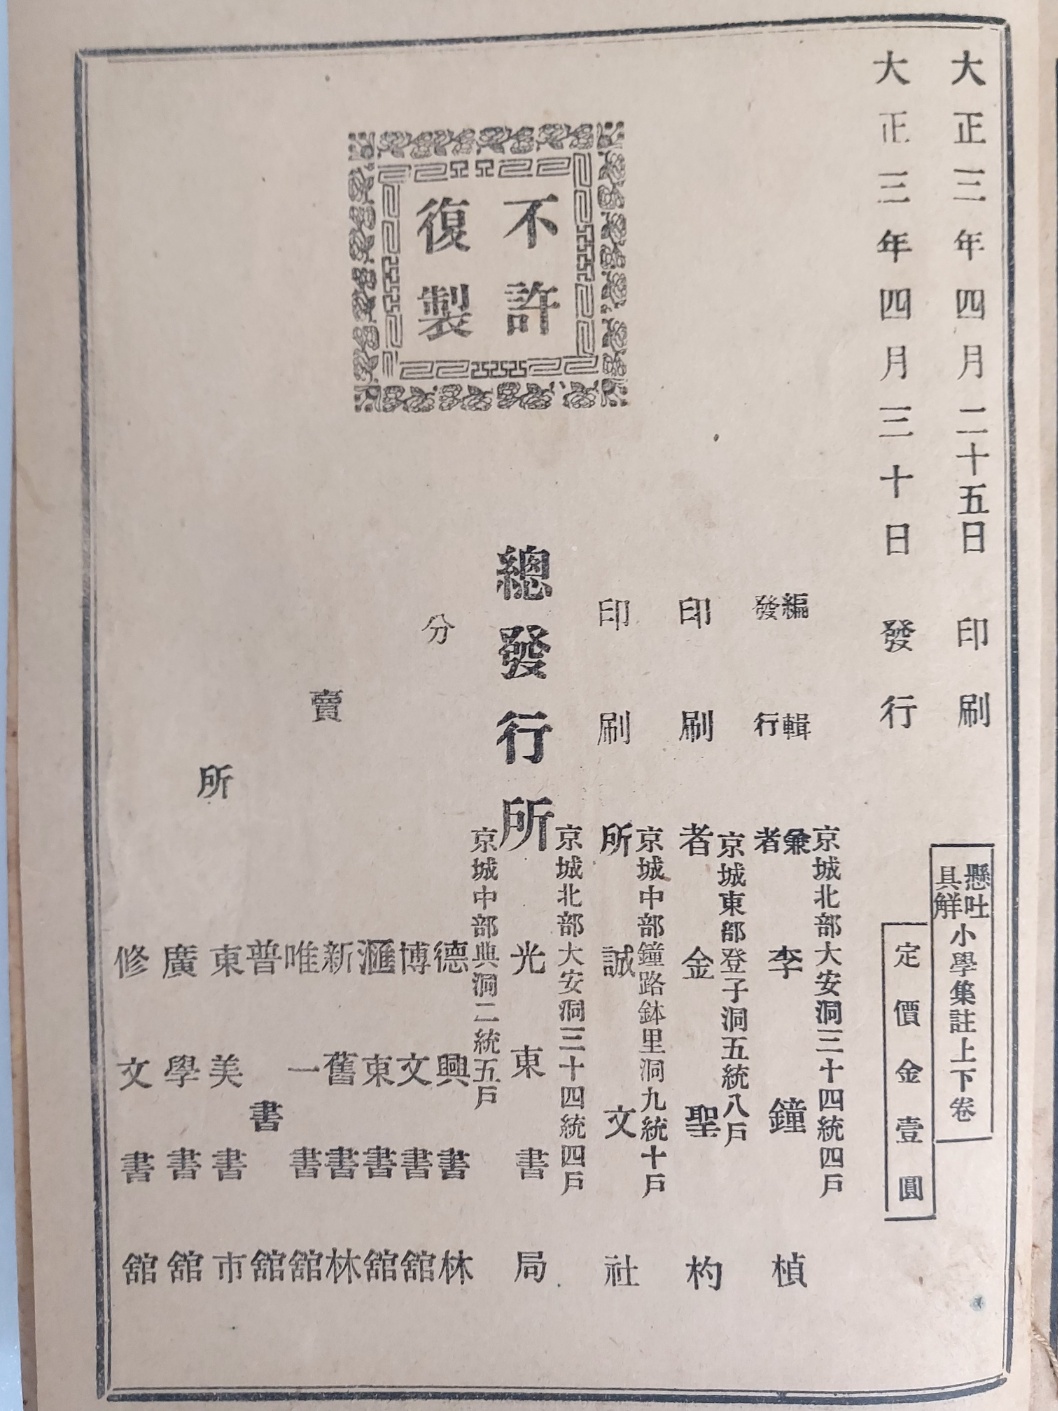 大正三年四月二十五日印刷
大正三年四月三十日發行
懸吐具解小學集註上下卷
定價金壹圓
不許復製
京城北部大安洞三十四統四戶
編輯兼發行者 李鐘楨
京城東部登子洞五統八戶
印刷者 金聖杓
京城中部鐘路鉢里洞九統十戶
印刷所 誠文社
京城北部大安洞三十四統四戶
總發行所 光東書局
京城中部典洞二統五戶
分賣所
德興書林
博文書舘
滙東書舘
新舊書林
唯一書舘
普書舘
東美書市
廣學書舘
修文書舘